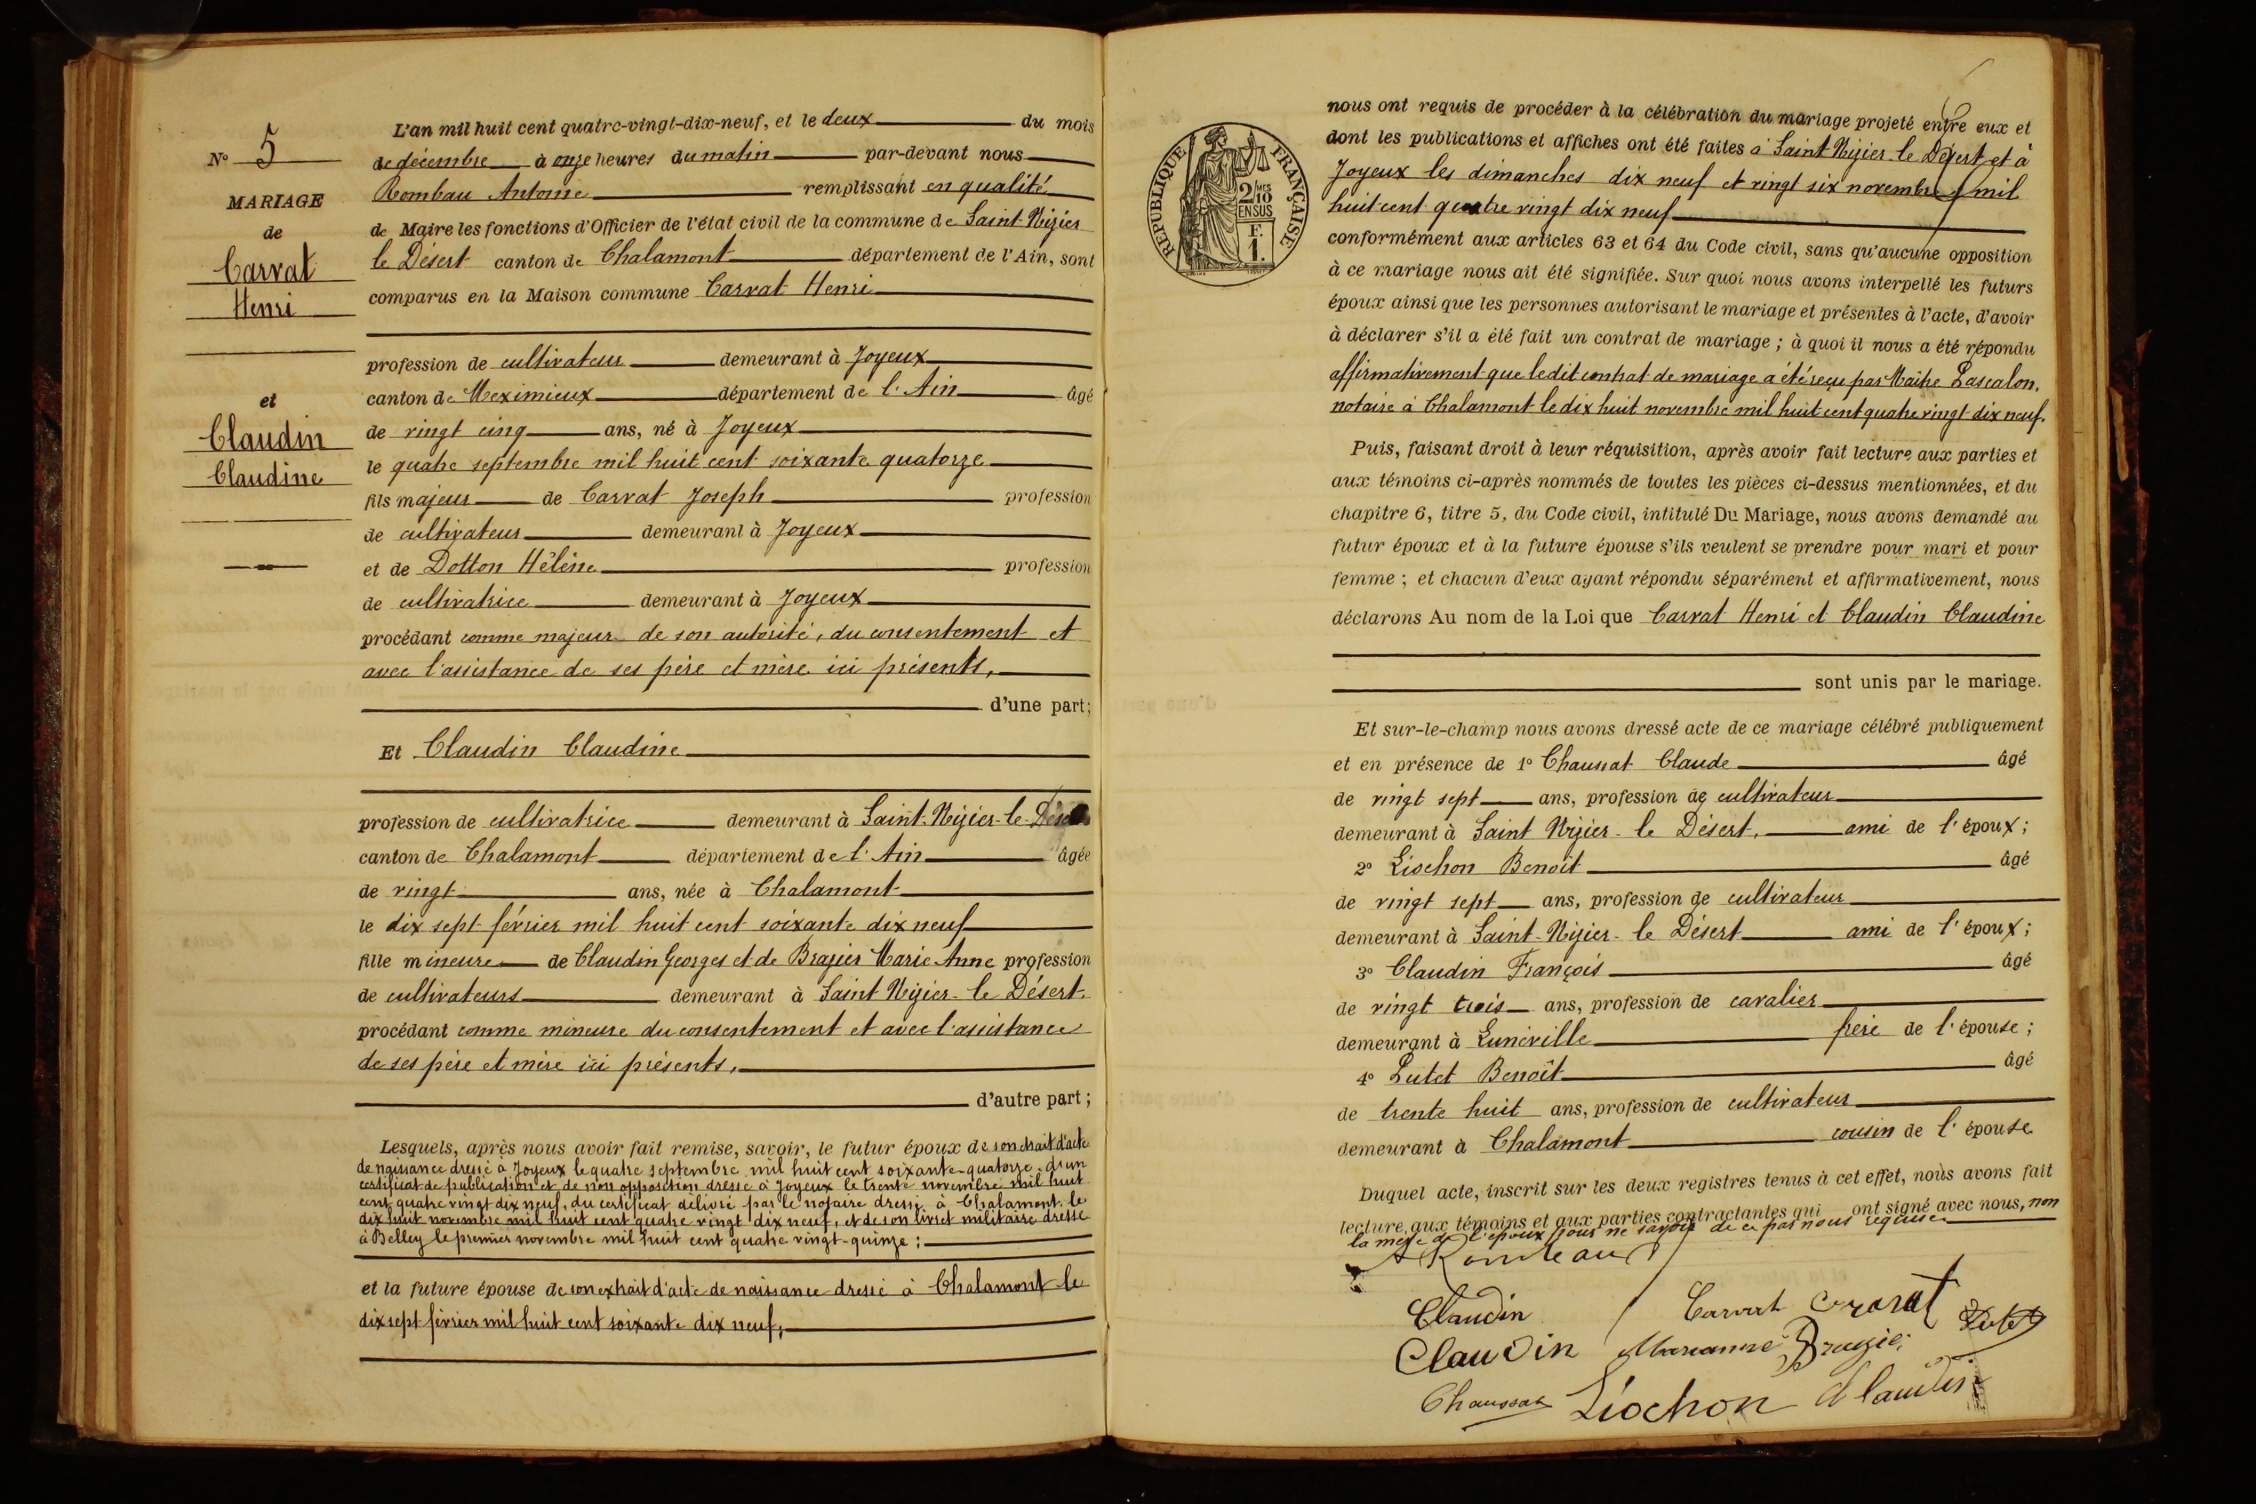 N° 5
MARIAGE
de
Carvat
Henri
et
Claudin
Claudine
L'an mil huit cent quatre-vingt-dix-neuf, et le deux du mois
de décembre à onze heures du matin par-devant nous
Rombau Antoine remplissant en qualité
de Maire les fonctions d'Officier de l'état civil de la commune de Saint Nizier
le Désert canton de Chalamont département de l'Ain, sont
comparus en la Maison commune Carvat Henri
profession de cultivateur demeurant à Joyeux
canton de Meximieux département de l'Ain âgé
de vingt cinq ans, né à Joyeux
le quatre septembre mil huit cent soixante quatorze
fils majeur de Carvat Joseph profession
de cultivateur demeurant à Joyeux
et de Dotton Hélène profession
de cultivatrice demeurant à Joyeux
procédant comme majeur de son autorité, du consentement et
avec l'assistance de ses père et mère ici présents,
d'une part;
Et Claudin Claudine
profession de cultivatrice demeurant à Saint-Nizier-le-Désert
canton de Chalamont département de l'Ain âgée
de vingt ans, née à Chalamont
le dix sept février mil huit cent soixante dix neuf
fille mineure de Claudin Georges et de Brazier Marie Anne profession
de cultivateurs demeurant à Saint Nizier-le Désert,
procédant comme mineure du consentement et avec l'assistance
de ses père et mère ici présents,
d'autre part;
Lesquels, après nous avoir fait remise, savoir, le futur époux de son extrait d'acte
de naissance dressé à Joyeux le quatre septembre mil huit cent soixante-quatorze, d'un
certificat de publication et de non opposition dressé à Joyeux le trente novembre mil huit
cent quatre vingt dix neuf, du certificat délivré par le notaire dressé à Chalamont le
dix huit novembre mil huit cent quatre vingt dix neuf, et de son livret militaire dressé
à Belley le premier novembre mil huit cent quatre vingt-quinze;
et la future épouse de son extrait d'acte de naissance dressé à Chalamont le
dix sept février mil huit cent soixante dix neuf;
RÉPUBLIQUE FRANÇAISE
2/MES
10
EN SUS
F.
1.
nous ont requis de procéder à la célébration du mariage projeté entre eux et
dont les publications et affiches ont été faites à Saint Nizier le Désert et à
Joyeux les dimanches dix neuf et vingt six novembre mil
huit cent quatre vingt dix neuf
conformément aux articles 63 et 64 du Code civil, sans qu'aucune opposition
à ce mariage nous ait été signifiée. Sur quoi nous avons interpellé les futurs
époux ainsi que les personnes autorisant le mariage et présentes à l'acte, d'avoir
à déclarer s'il a été fait un contrat de mariage; à quoi il nous a été répondu
affirmativement que ledit contrat de mariage a été reçu par Maître Lascalon,
notaire à Chalamont le dix huit novembre mil huit cent quatre vingt dix neuf.
Puis, faisant droit à leur réquisition, après avoir fait lecture aux parties et
aux témoins ci-après nommés de toutes les pièces ci-dessus mentionnées, et du
chapitre 6, titre 5, du Code civil, intitulé Du Mariage, nous avons demandé au
futur époux et à la future épouse s'ils veulent se prendre pour mari et pour
femme; et chacun d'eux ayant répondu séparément et affirmativement, nous
déclarons Au nom de la Loi que Carvat Henri et Claudin Claudine
sont unis par le mariage.
Et sur-le-champ nous avons dressé acte de ce mariage célébré publiquement
et en présence de 1° Chaussat Claude âgé
de vingt sept ans, profession de cultivateur
demeurant à Saint Nizier-le Désert, ami de l'époux;
2° Liochon Benoît âgé
de vingt sept ans, profession de cultivateur
demeurant à Saint-Nizier-le Désert ami de l'époux;
3° Claudin François âgé
de vingt trois ans, profession de cavalier
demeurant à Lunéville frère de l'épouse;
4° Lutet Benoît âgé
de trente huit ans, profession de cultivateur
demeurant à Chalamont cousin de l'épouse
Duquel acte, inscrit sur les deux registres tenus à cet effet, nous avons fait
lecture aux témoins et aux parties contractantes qui ont signé avec nous, non
la mère de l'époux pour ne savoir de ce par nous requise
Rombau
Claudin Carvat Carvat Lutet
Claudin Marianne Brazier
Chaussat Liochon Claudin